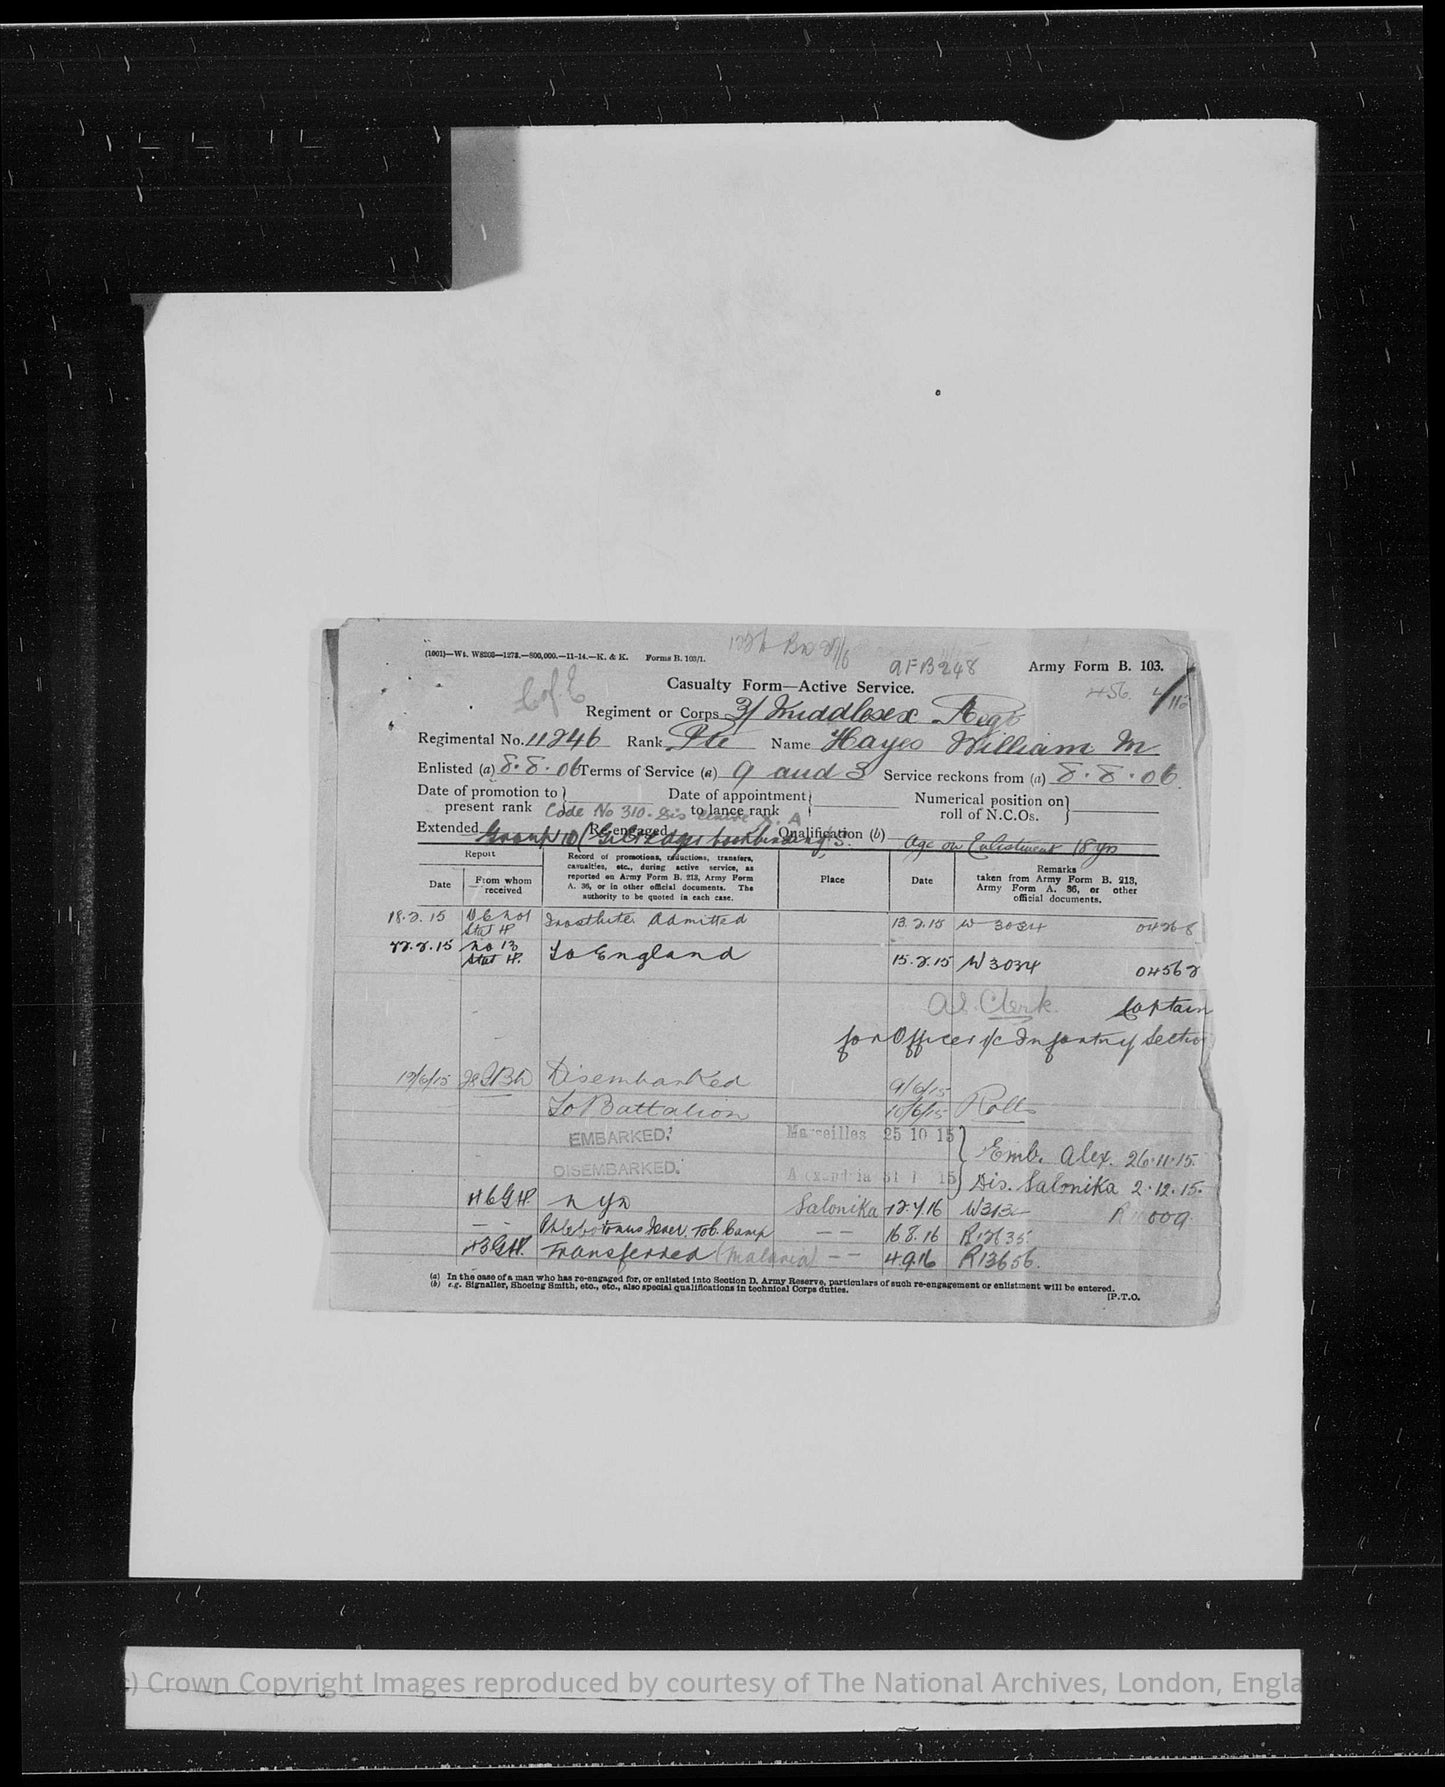 (1001)—Wt. W8203—1273.—800,000.—11-14.—K. & K. Forms B. 103/1.
AFB248
Army Form B. 103.
Casualty Form—Active Service.
456.
Regiment or Corps 3/ Middlesex Regt
Regimental No. 11246 Rank Pte Name Hayes William M
Enlisted (a) 8.8.06 Terms of Service (a) 9 and 3 Service reckons from (a) 8.8.06
Date of promotion to present rank } Date of appointment to lance rank } Numerical position on roll of N.C.Os. }
Code No 310.
Extended Re-engaged Qualification (b)
Group 10 (Gilt edges bookbinding) Age on Enlistment 18 yrs
Report
Date From whom received
Record of promotions, reductions, transfers, casualties, etc., during active service, as reported on Army Form B. 213, Army Form A. 36, or in other official documents. The authority to be quoted in each case.
Place
Date
Remarks taken from Army Form B. 213, Army Form A. 36, or other official documents.
18.2.15 Stat H Frostbite Admitted 13.2.15 W 3034
22.2.15 No 13 Stat H. To England 15.2.15 W3034 04562
Clerk Captain
for Officer i/c Infantry Section
12/6/15 Disembarked 9/6/15
To Battalion 10/6/15 Rolls
EMBARKED: Marseilles 25 10 15
Emb. Alex. 26.11.15.
DISEMBARKED. Alexandria
Dis. Salonika 2.12.15.
N y d Salonika 12.7.16
Phlebotomus Fever, To C. Camp — — 16.8.16 R12635
Transferred (Malaria) — — 4.9.16 R13656.
(a) In the case of a man who has re-engaged for, or enlisted into Section D, Army Reserve, particulars of such re-engagement or enlistment will be entered.
(b) e.g. Signaller, Shoeing Smith, etc., etc., also special qualifications in technical Corps duties.
[P.T.O.
) Crown Copyright Images reproduced by courtesy of The National Archives, London, England